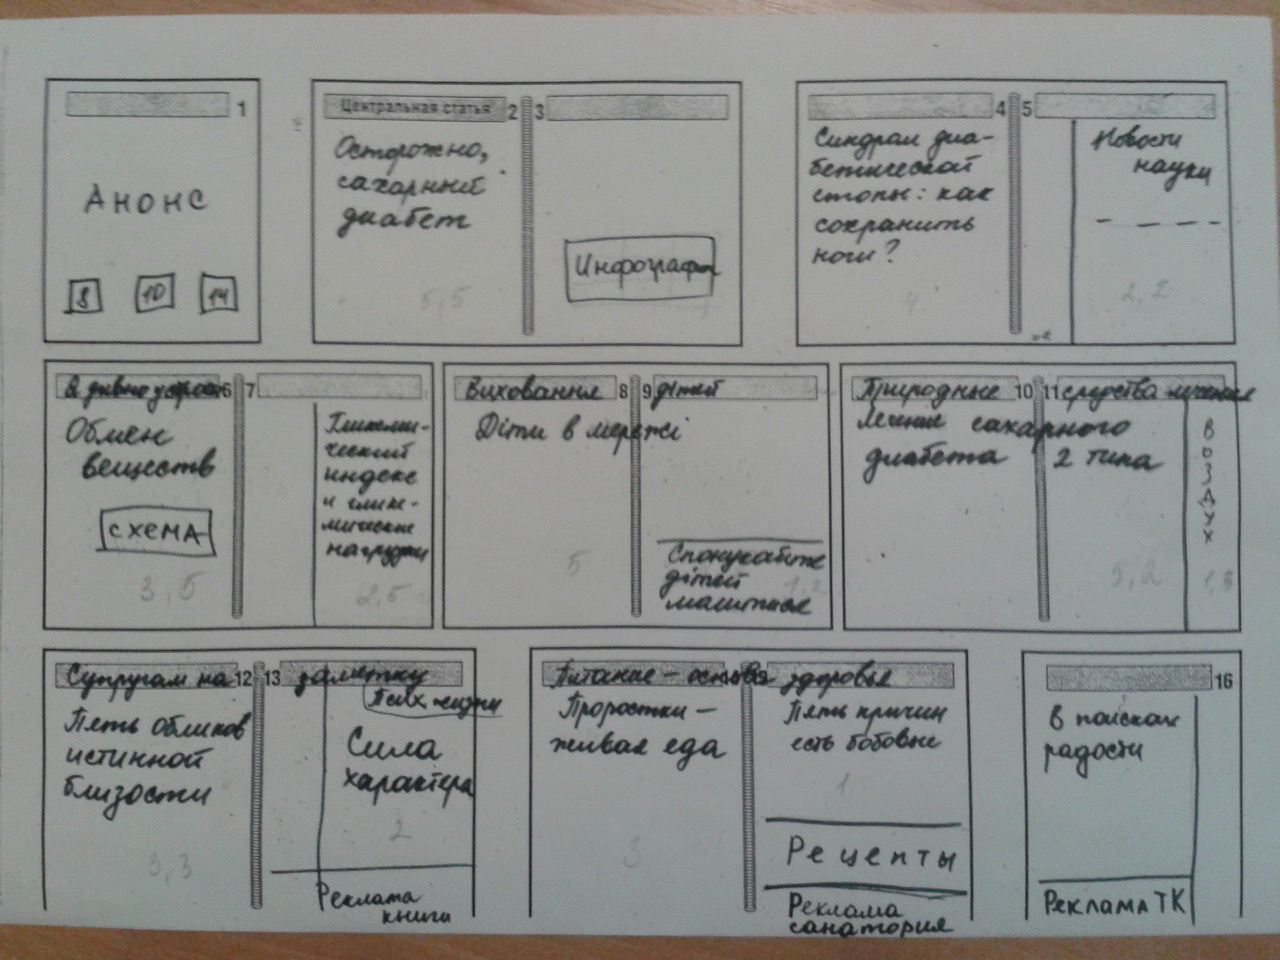 1
Анонс
8 10 14
Центральная статья 2 3
Осторожно,
сахарный
диабет
5,5
Инфографи
4 5
Синдром диа-
бетической
стопы: как
сохранить
ноги?
4
Новости
науки
2,2
6 7
Обмен
веществ
схема
3,5
Гликеми-
ческий
индекс
и глике-
мические
нагрузки
2,5
Виховання 8 9 дітей
Діти в мережі
5
Спонукайте
дітей
молитися
1,2
Природные 10 11 средства лечения
Лечение сахарного
диабета 2 типа
5,2
В
О
З
Д
У
Х
1,3
Супругам на 12 13 заметку
Пять обликов
истинной
близости
3,3
Псих. жизни
Сила
характера
2
Реклама
книги
Питание – основа здоровья
Проростки –
живая еда
3
Пять причин
есть бобовые
1
Рецепты
Реклама
санатория
16
В поисках
радости
Реклама ТК